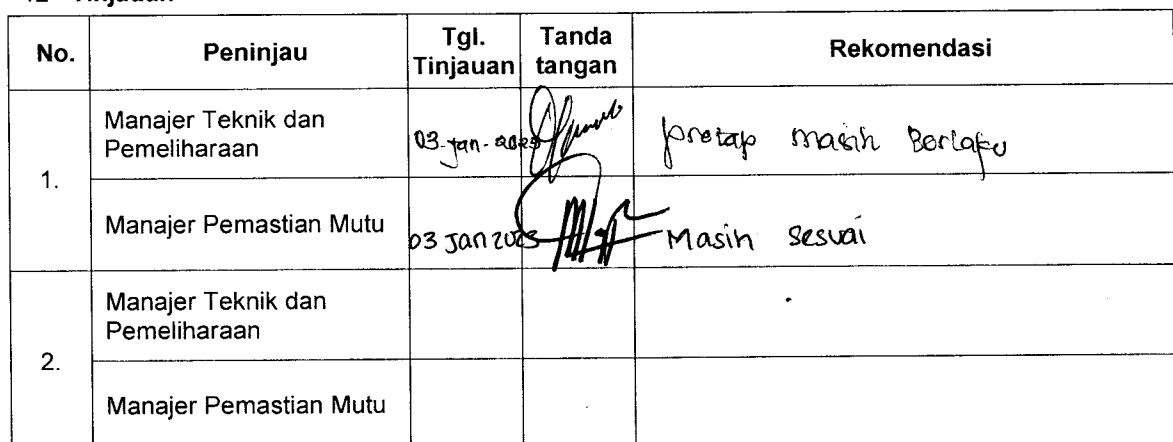 12 Tinjauan
No. Peninjau Tgl. Tinjauan Tanda tangan Rekomendasi
1. Manajer Teknik dan Pemeliharaan 03-Jan-2023 protap masih Berlaku
Manajer Pemastian Mutu 03 Jan 2023 Masih sesuai
2. Manajer Teknik dan Pemeliharaan
Manajer Pemastian Mutu